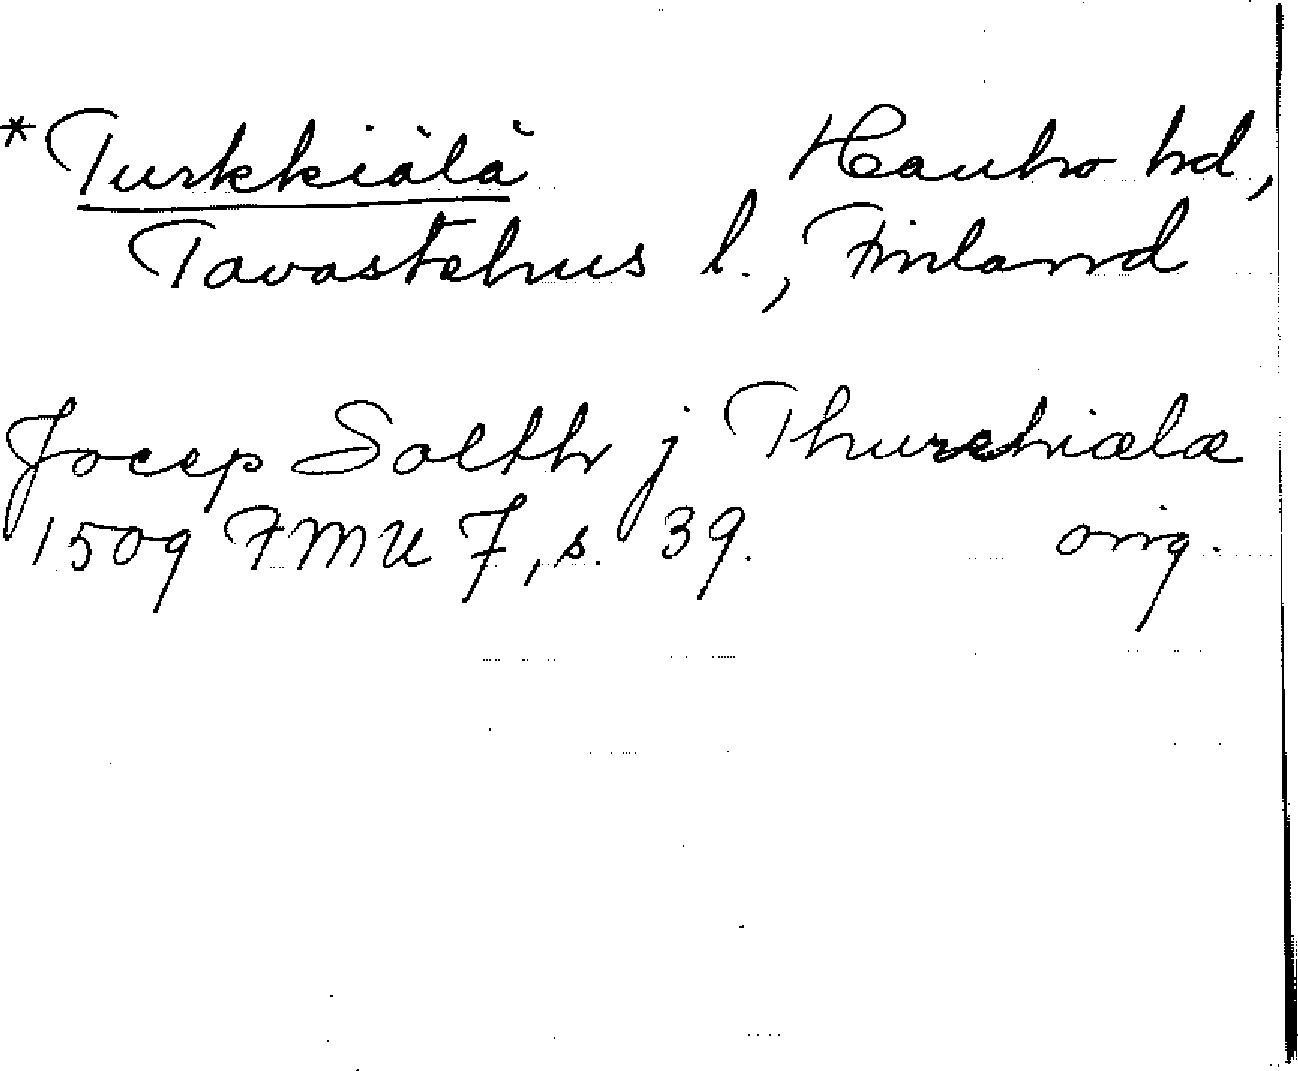 *Turkkiälä Hauho hd,
Tavastehus l., Finland
Jocep Solth j Thurchiælæ
1509 FMU 7, s. 39. orig.